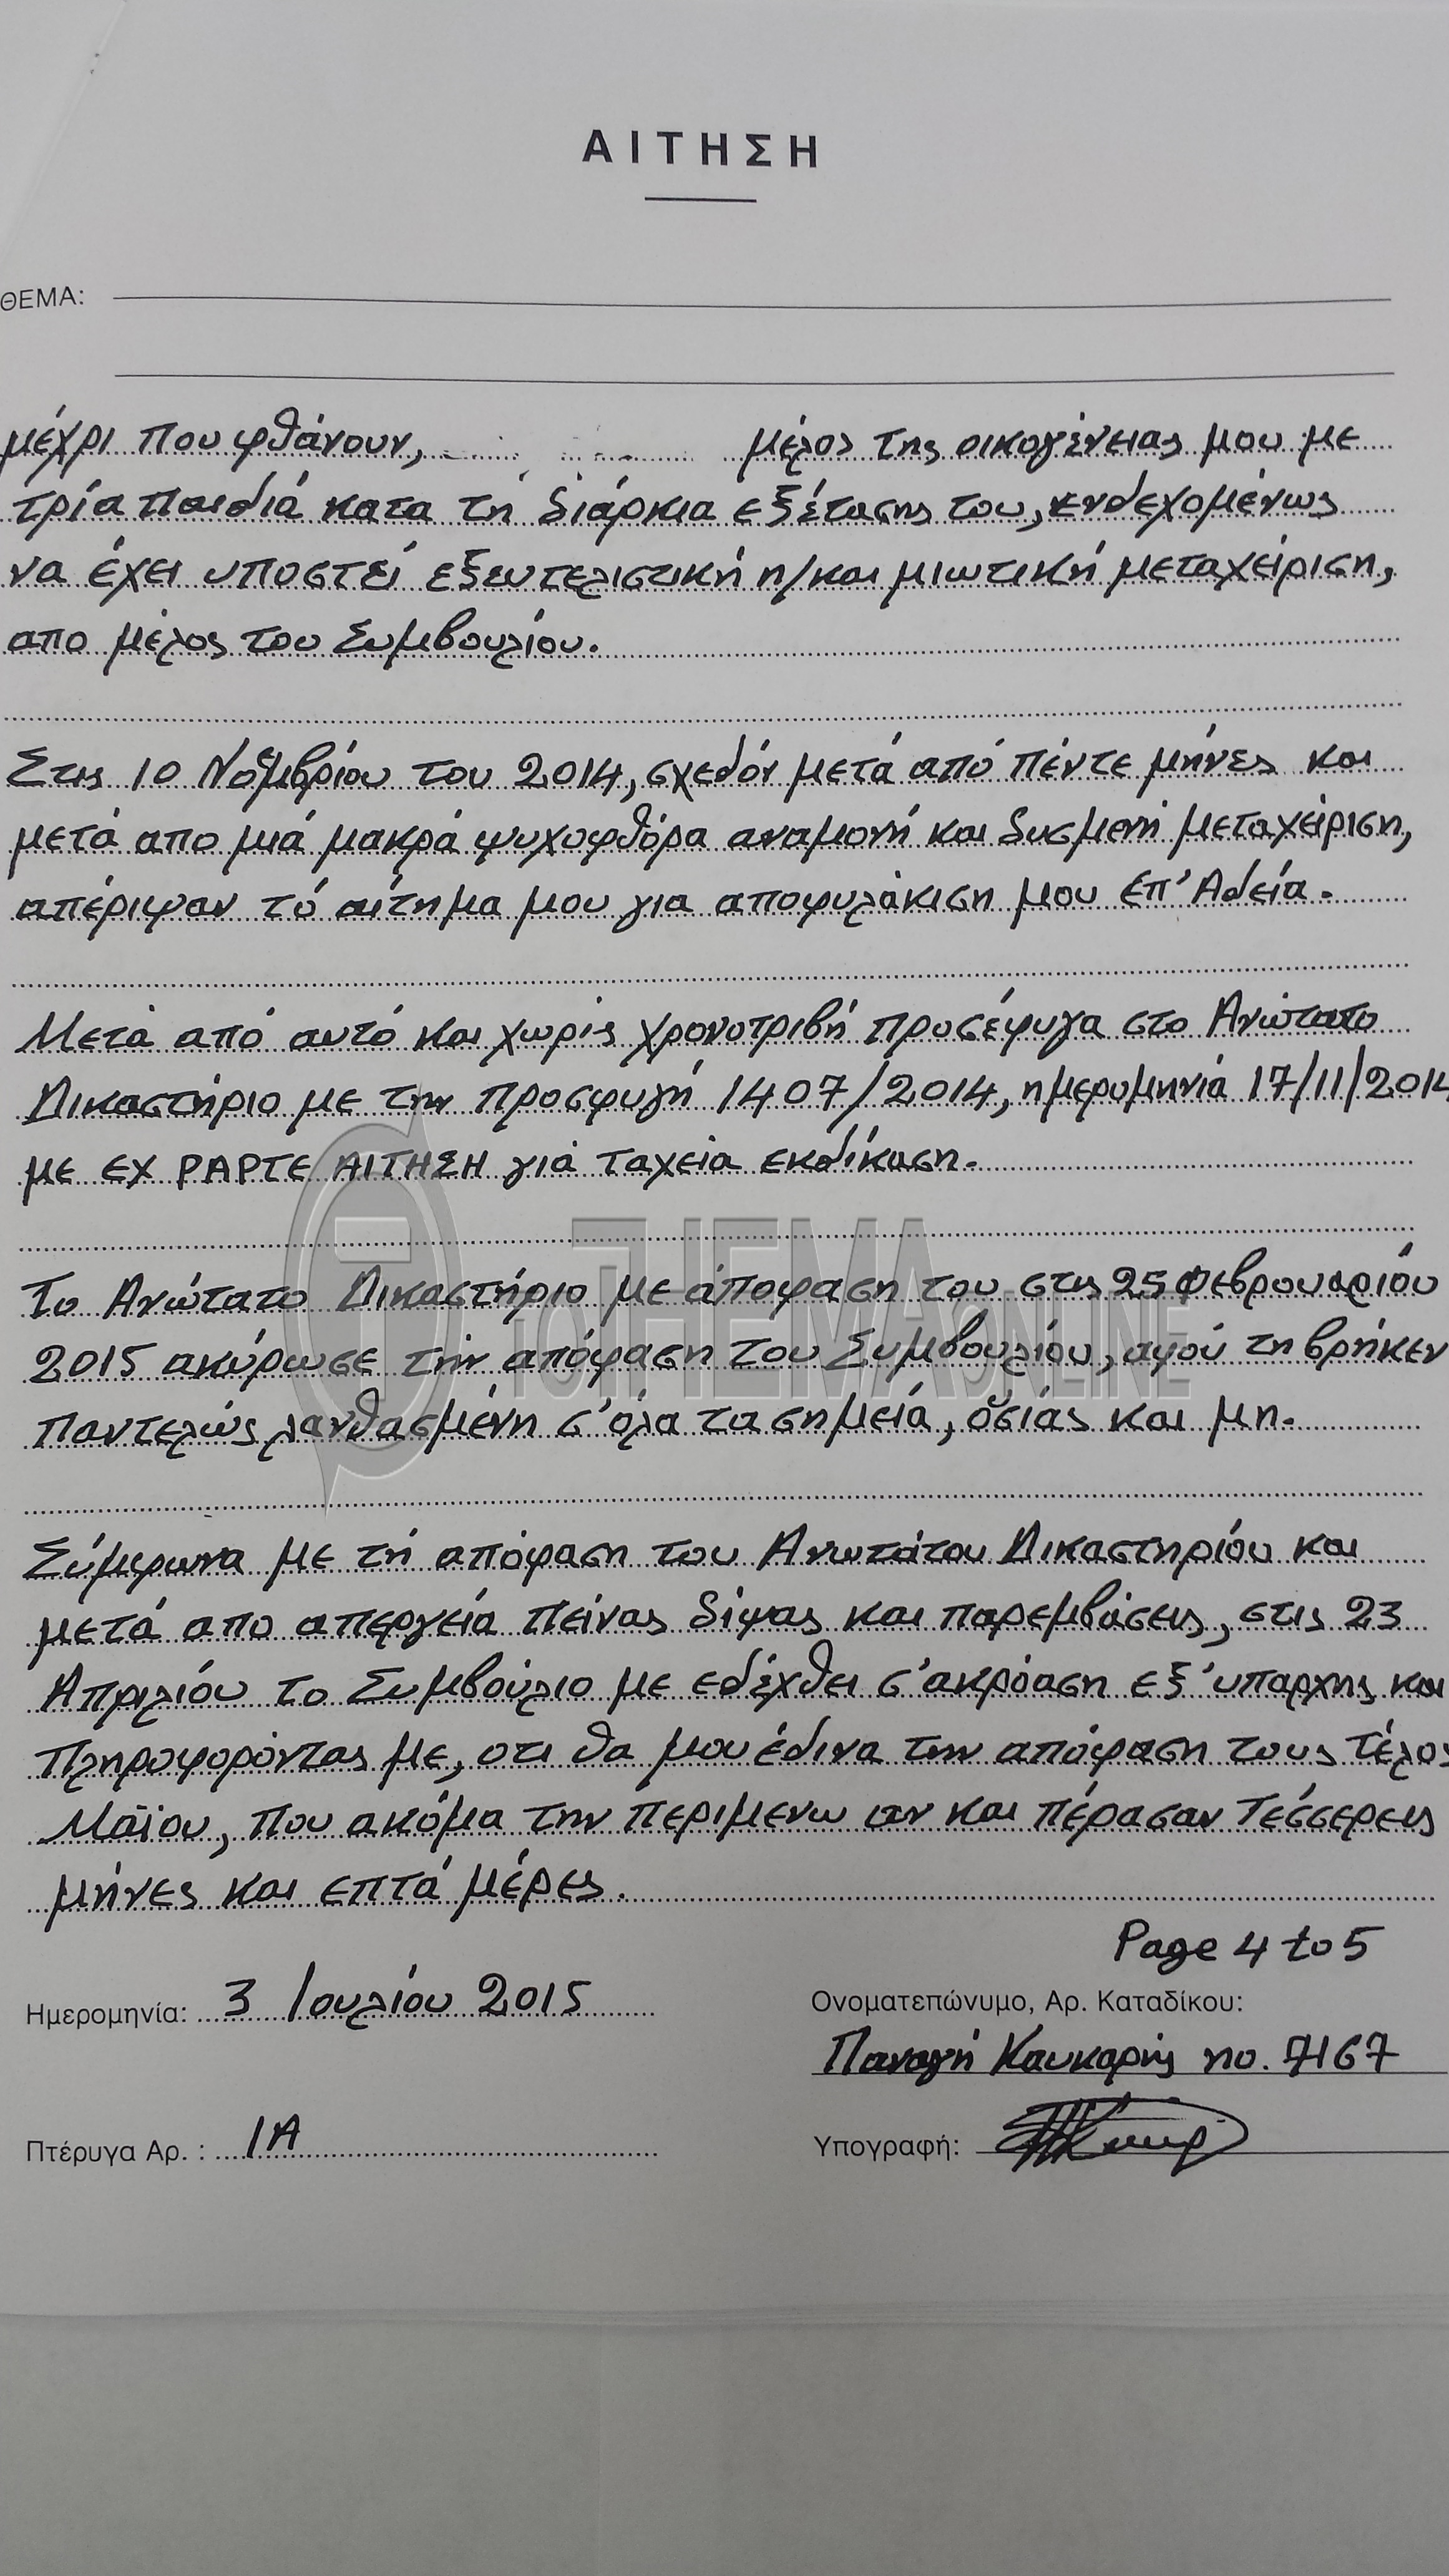 ΑΙΤΗΣΗ
ΘΕΜΑ:
μέχρι που φθάνουν, μέλος της οικογένειας μου με
τρία παιδιά κατα τή διάρκια εξέτασης του, ενδεχομένως
να έχει υποστεί εξευτελιστική η/και μιωτική μεταχείριση,
απο μέλος του Συμβουλίου.
Στις 10 Νοεμβρίου του 2014, σχεδόν μετά από πέντε μήνες και
μετά απο μιά μακρά ψυχοφθόρα αναμονή και δυσμενή μεταχείριση,
απέριψαν τό αίτημα μου για αποφυλάκιση μου επ' Αδεία.
Μετά από αυτό και χωρίς χρονοτριβή προσέφυγα στο Ανώτατο
Δικαστήριο με την προσφυγή 1407/2014, ημερομηνιά 17/11/2014
με EX PAPTE ΑΙΤΗΣΗ γιά ταχεία εκδίκαση.
Το Ανώτατο Δικαστήριο με άποφαση του στις 25 Φεβρουαριόυ
2015 ακύρωσε τήν απόφαση του Συμβουλίου, αφού τη βρήκεν
παντελώς λανθασμένη σ' όλα τα σημεία, ουσίας και μη.
Σύμφωνα με τή απόφαση του Ανωτάτου Δικαστηρίου και
μετά απο απεργεία πείνας δίψας και παρεμβάσεις, στις 23
Απριλίου το Συμβούλιο με εδέχθει σ' ακρόαση εξ' υπαρχης και
πληροφορόντας με, οτι θα μου έδινα την απόφαση τους τέλος
Μαϊου, που ακόμα την περιμενω αν και πέρασαν τέσσερεις
μήνες και επτά μέρες.
Page 4 to 5
Ημερομηνία: 3 Ιουλίου 2015
Ονοματεπώνυμο, Αρ. Καταδίκου:
Παναγή Καυκαρής no. 7167
Πτέρυγα Αρ. : 1Α
Υπογραφή:
TO THEMA ONLINE